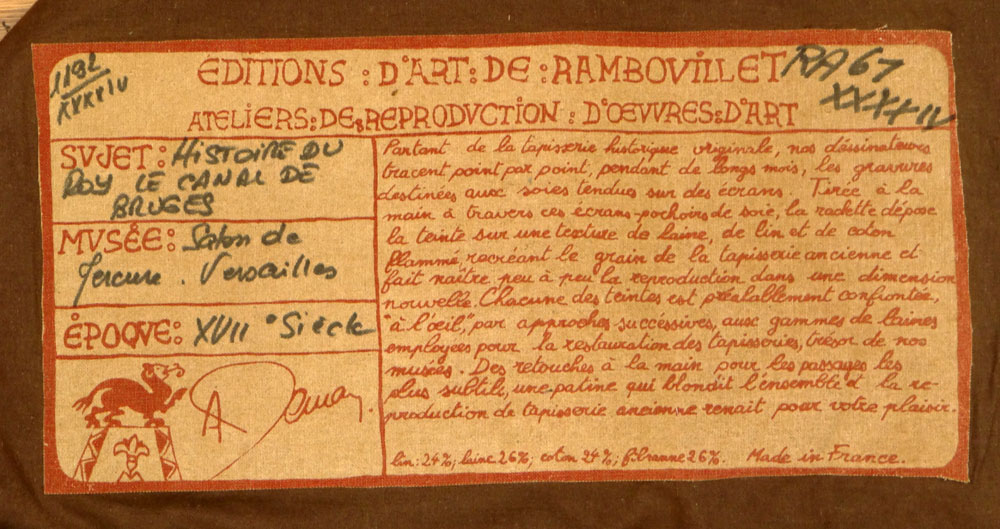 1182
XXXXIV
EDITIONS : D'ART : DE : RAMBOVILLET
RA67
XXXXIV
ATELIERS : DE : REPRODVCTION : D'ŒVVRES : D'ART
SVJET : HISTOIRE DU
ROY LE CANAL DE
BRUGES
MVSÉE : Salon de
Mercure . Versailles
ÉPOQVE : XVII ° Siècle
Partant de la tapisserie historique originale, nos déssinateurs
tracent point par point, pendant de longs mois, les gravures
destinées aux soies tendues sur des écrans. Tirée à la
main à travers ces écrans-pochoirs de soie, la raclette dépose
la teinte sur une texture de laine, de lin et de coton
flammé recréant le grain de la tapisserie ancienne et
fait naître peu à peu la reproduction dans une dimension
nouvelle. Chacune des teintes est préalablement confrontée,
"à l'œil", par approches successives, aux gammes de laines
employées pour la restauration des tapisseries, trésor de nos
musées. Des retouches à la main pour les passages les
plus subtils, une patine qui blondit l'ensemble et la re-
production de tapisserie ancienne renait pour votre plaisir.
lin: 24%; laine 26%; coton 24%; fibranne 26%. Made in France.